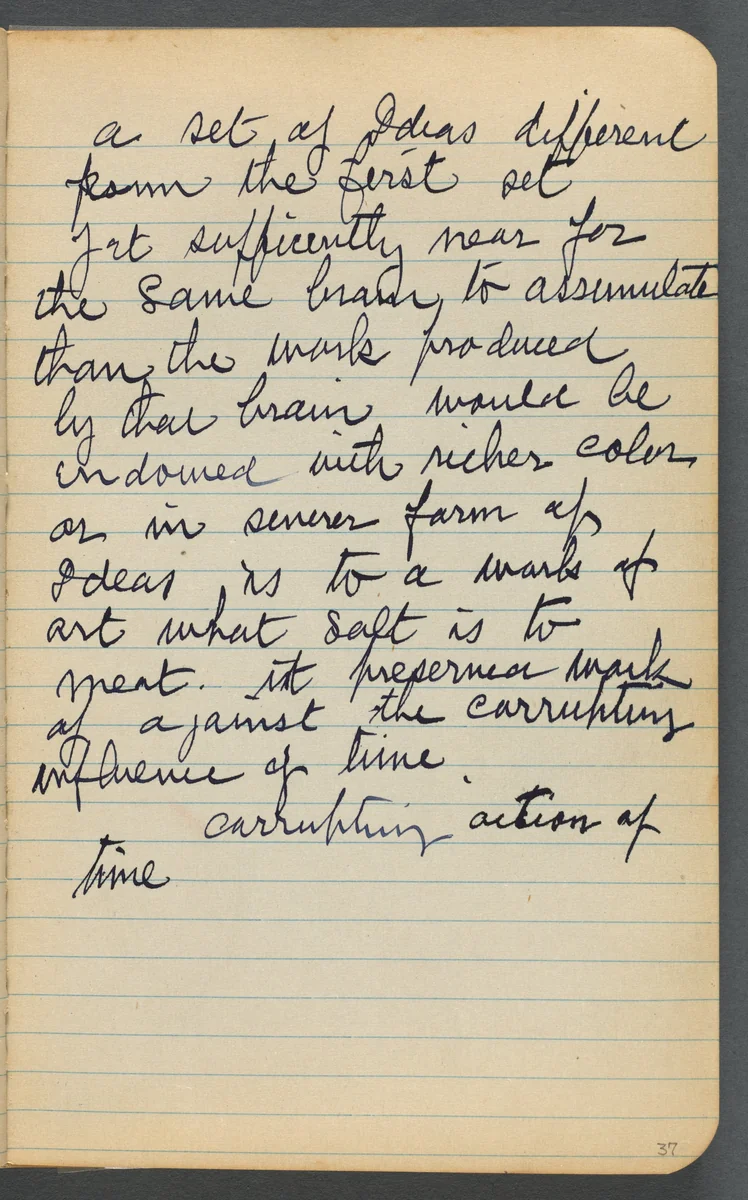 a set of Ideas different
from the first set
yet sufficently near for
the same brain to assumulate
than the work produced
by that brain would be
endowed with richer color
or in severer form of
Ideas is to a work of
art what Salt is to
meat. it preserved work
of against the corrupting
influence of time.
corrupting action of
time
37